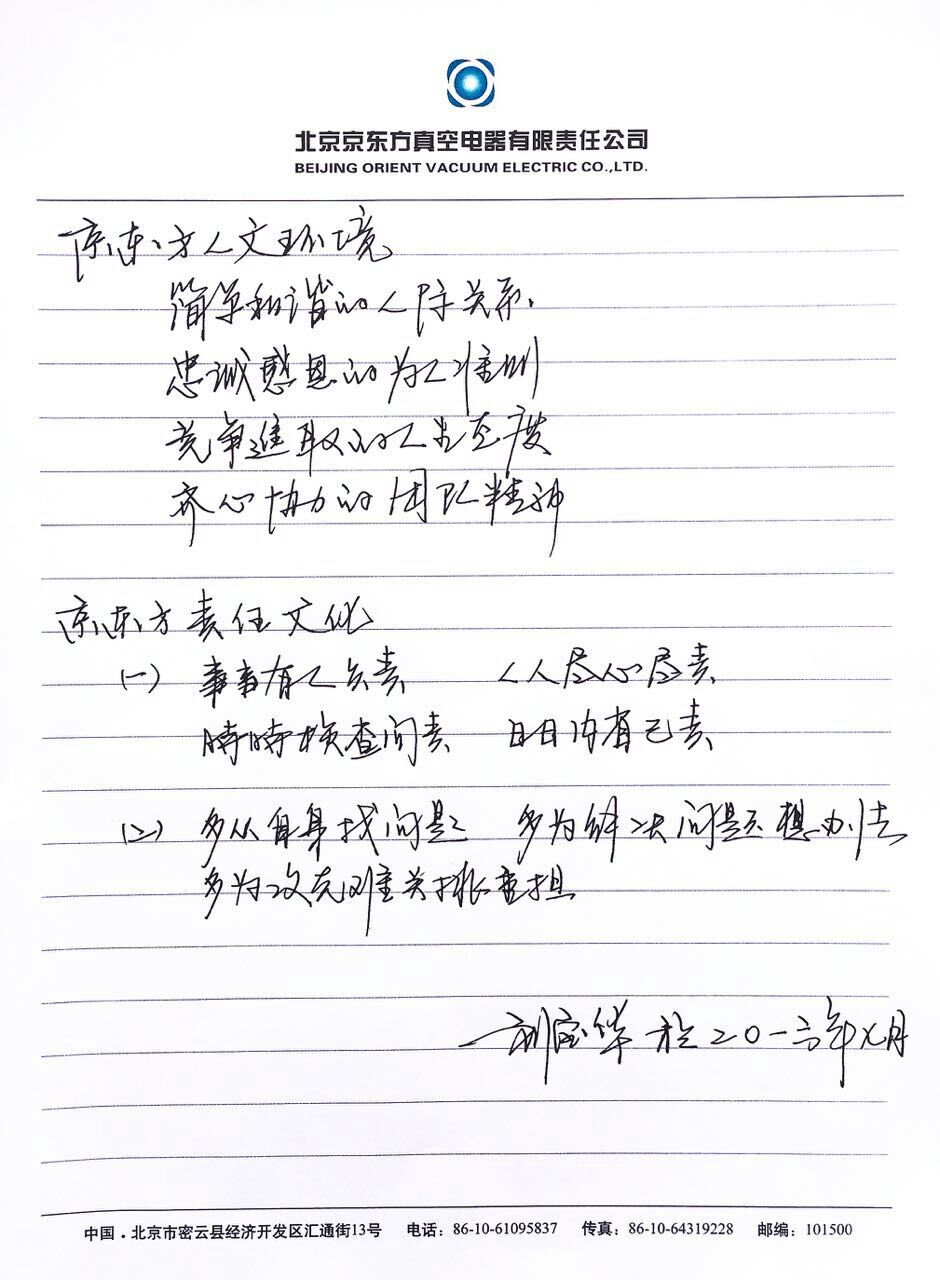 北京京东方真空电器有限责任公司
BEIJING ORIENT VACUUM ELECTRIC CO.,LTD.
京东方人文环境
简单和谐的人际关系
忠诚感恩的为人准则
竞争進取的人生态度
齐心协力的团队精神
京东方责任文化
(一) 事事有人负责 人人尽心尽责
時時检查问责 日日内省己责
(二) 多从自身找问题 多为解决问题想办法
多为攻克难关挑重担
刘宝华 於二〇一六年九月
中国·北京市密云县经济开发区汇通街13号 电话：86-10-61095837 传真：86-10-64319228 邮编：101500